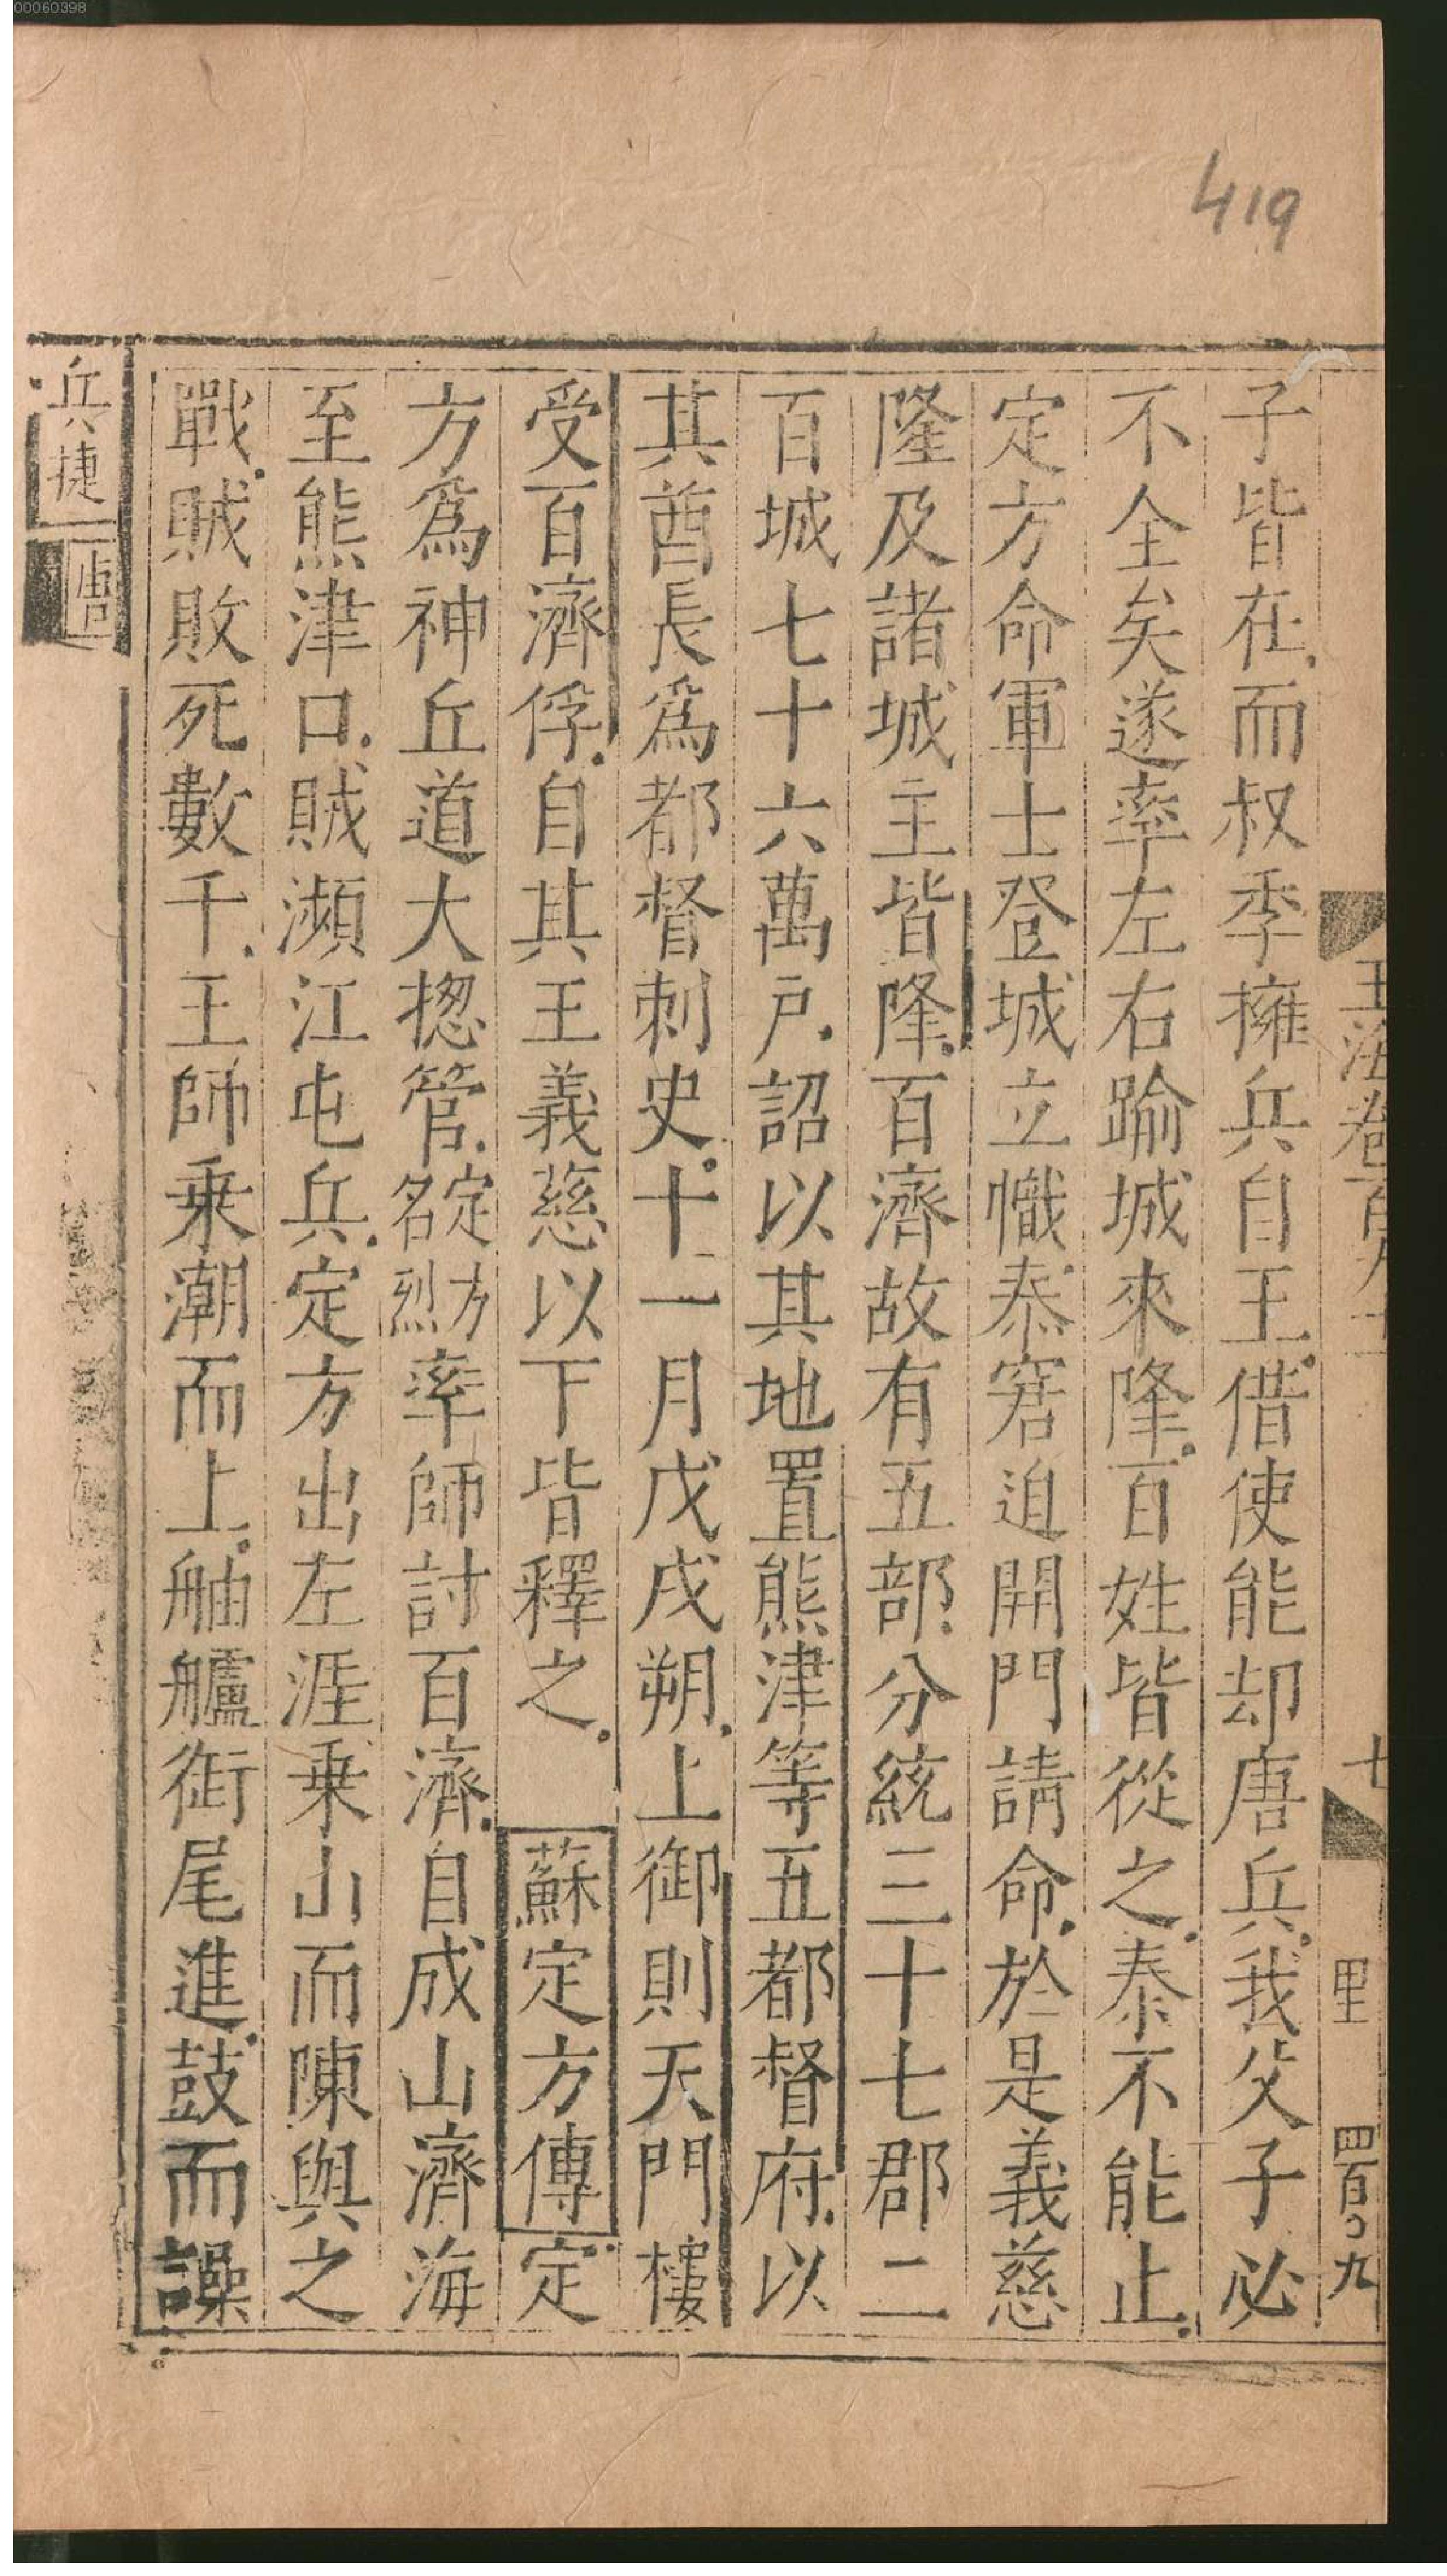 00060398
419
子皆在而叔季擁兵自王借使能却唐兵我父子必
不全矣遂率左右踰城來隆百姓皆從之泰不能止
定方命軍士登城立幟泰窘迫開門請命於是義慈
隆及諸城主皆隆百濟故有五部分統三十七郡二
百城七十六萬戶詔以其地置熊津等五都督府以
其酋長爲都督刺史十一月戊戌朔上御則天門樓
受百濟俘自其王義慈以下皆釋之 蘇定方傳定
方爲神丘道大揔管定方名烈率師討百濟自成山濟海
至熊津口賊瀕江屯兵定方出左涯乘山而陳與之
戰賊敗死數千王師乗潮而上舳艫銜尾進鼓而譟
兵捷 唐
玉海卷百九十一
七
里
四百〇九